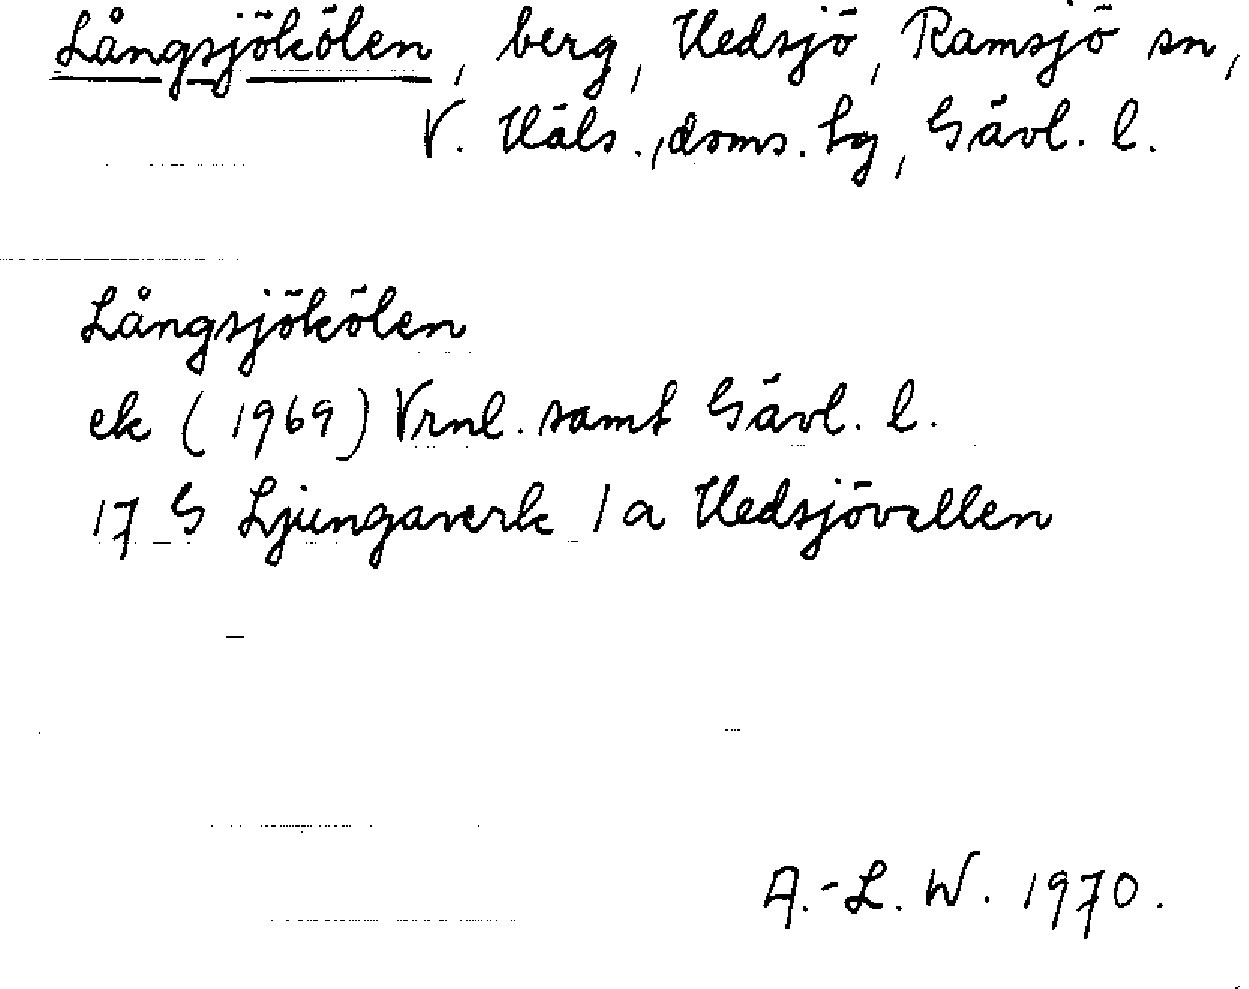 Långsjökölen, berg, Hedsjö, Ramsjö sn,
V. Häls., doms. hg, Gävl. l.
Långsjökölen
ek (1969) Vrnl. samt Gävl. l.
17 G Ljungaverk 1 a Hedsjövallen
A.-L. W. 1970.